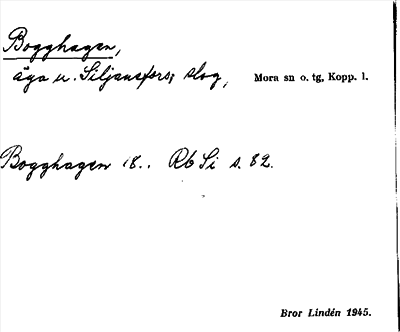 Bogghagen,
äga u. Siljansfors, skog, Mora sn o. tg, Kopp. l.
Bogghagen 18.. Rb Si s. 82.
Bror Lindén 1945.